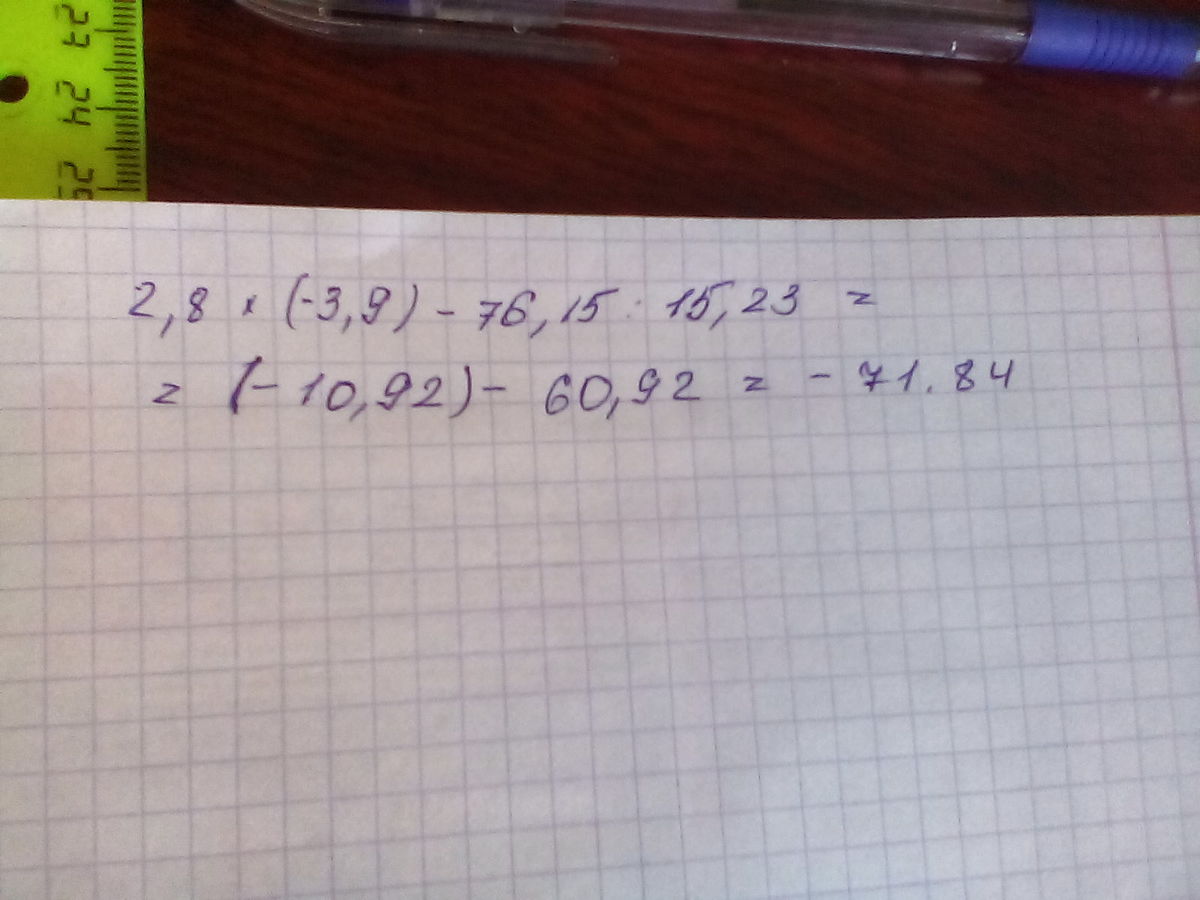 27 24 29
2,8 × (-3,9) - 76,15 : 15,23 =
= (- 10,92) - 60,92 = - 71.84